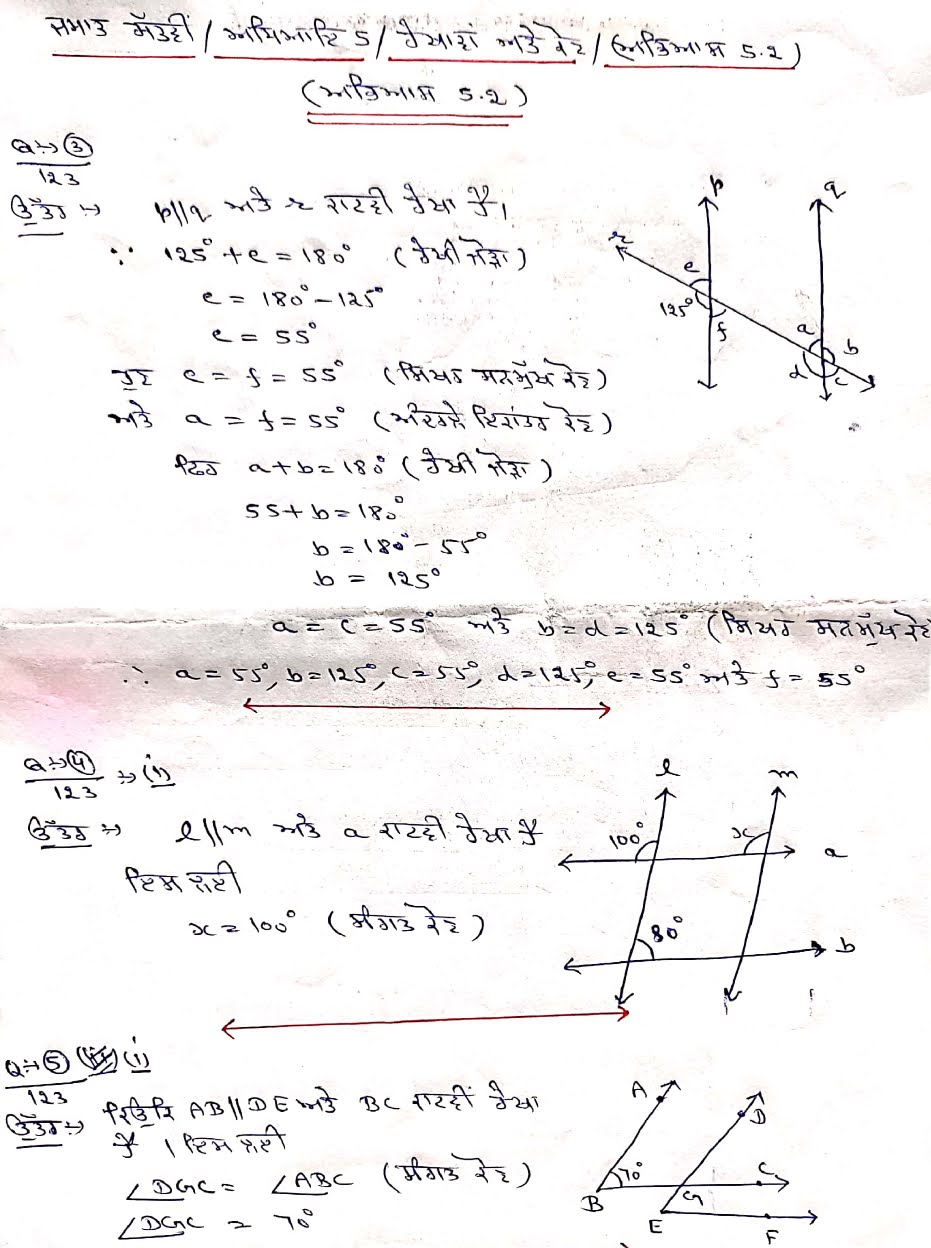 ਜਮਾਤ ਸੱਤਵੀਂ / ਅਧਿਆਇ 5 / ਰੇਖਾਵਾਂ ਅਤੇ ਕੋਣ / (ਅਭਿਆਸ 5.2)
(ਅਭਿਆਸ 5.2)
Q:→ ③
123
ਉੱਤਰ :→ p||q ਅਤੇ r ਕਾਟਵੀ ਰੇਖਾ ਹੈ।
∵ 125° + e = 180° (ਰੇਖੀ ਜੋੜਾ)
e = 180° - 125°
e = 55°
ਹੁਣ e = f = 55° (ਸਿਖਰ ਸਨਮੁੱਖ ਕੋਣ)
ਅਤੇ a = f = 55° (ਅੰਦਰਲੇ ਇਕਾਂਤਰ ਕੋਣ)
ਫਿਰ a + b = 180° (ਰੇਖੀ ਜੋੜਾ)
55 + b = 180°
b = 180° - 55°
b = 125°
a = c = 55° ਅਤੇ b = d = 125° (ਸਿਖਰ ਸਨਮੁੱਖ ਕੋਣ
∴ a = 55°, b = 125°, c = 55°, d = 125°, e = 55° ਅਤੇ f = 55°
p q
r
e
125°
f
a b
d c
Q:→ ④ :→ (i)
123
ਉੱਤਰ :→ l||m ਅਤੇ a ਕਾਟਵੀ ਰੇਖਾ ਹੈ
ਇਸ ਲਈ
x = 100° (ਸੰਗਤ ਕੋਣ)
l m
100° x a
80° b
Q:→ ⑤ (i)
123
ਉੱਤਰ :→ ਕਿਉਂਕਿ AB||DE ਅਤੇ BC ਕਾਟਵੀਂ ਰੇਖਾ
ਹੈ । ਇਸ ਲਈ
∠DGC = ∠ABC (ਸੰਗਤ ਕੋਣ)
∠DGC = 70°
A D
70° C
B G
E F